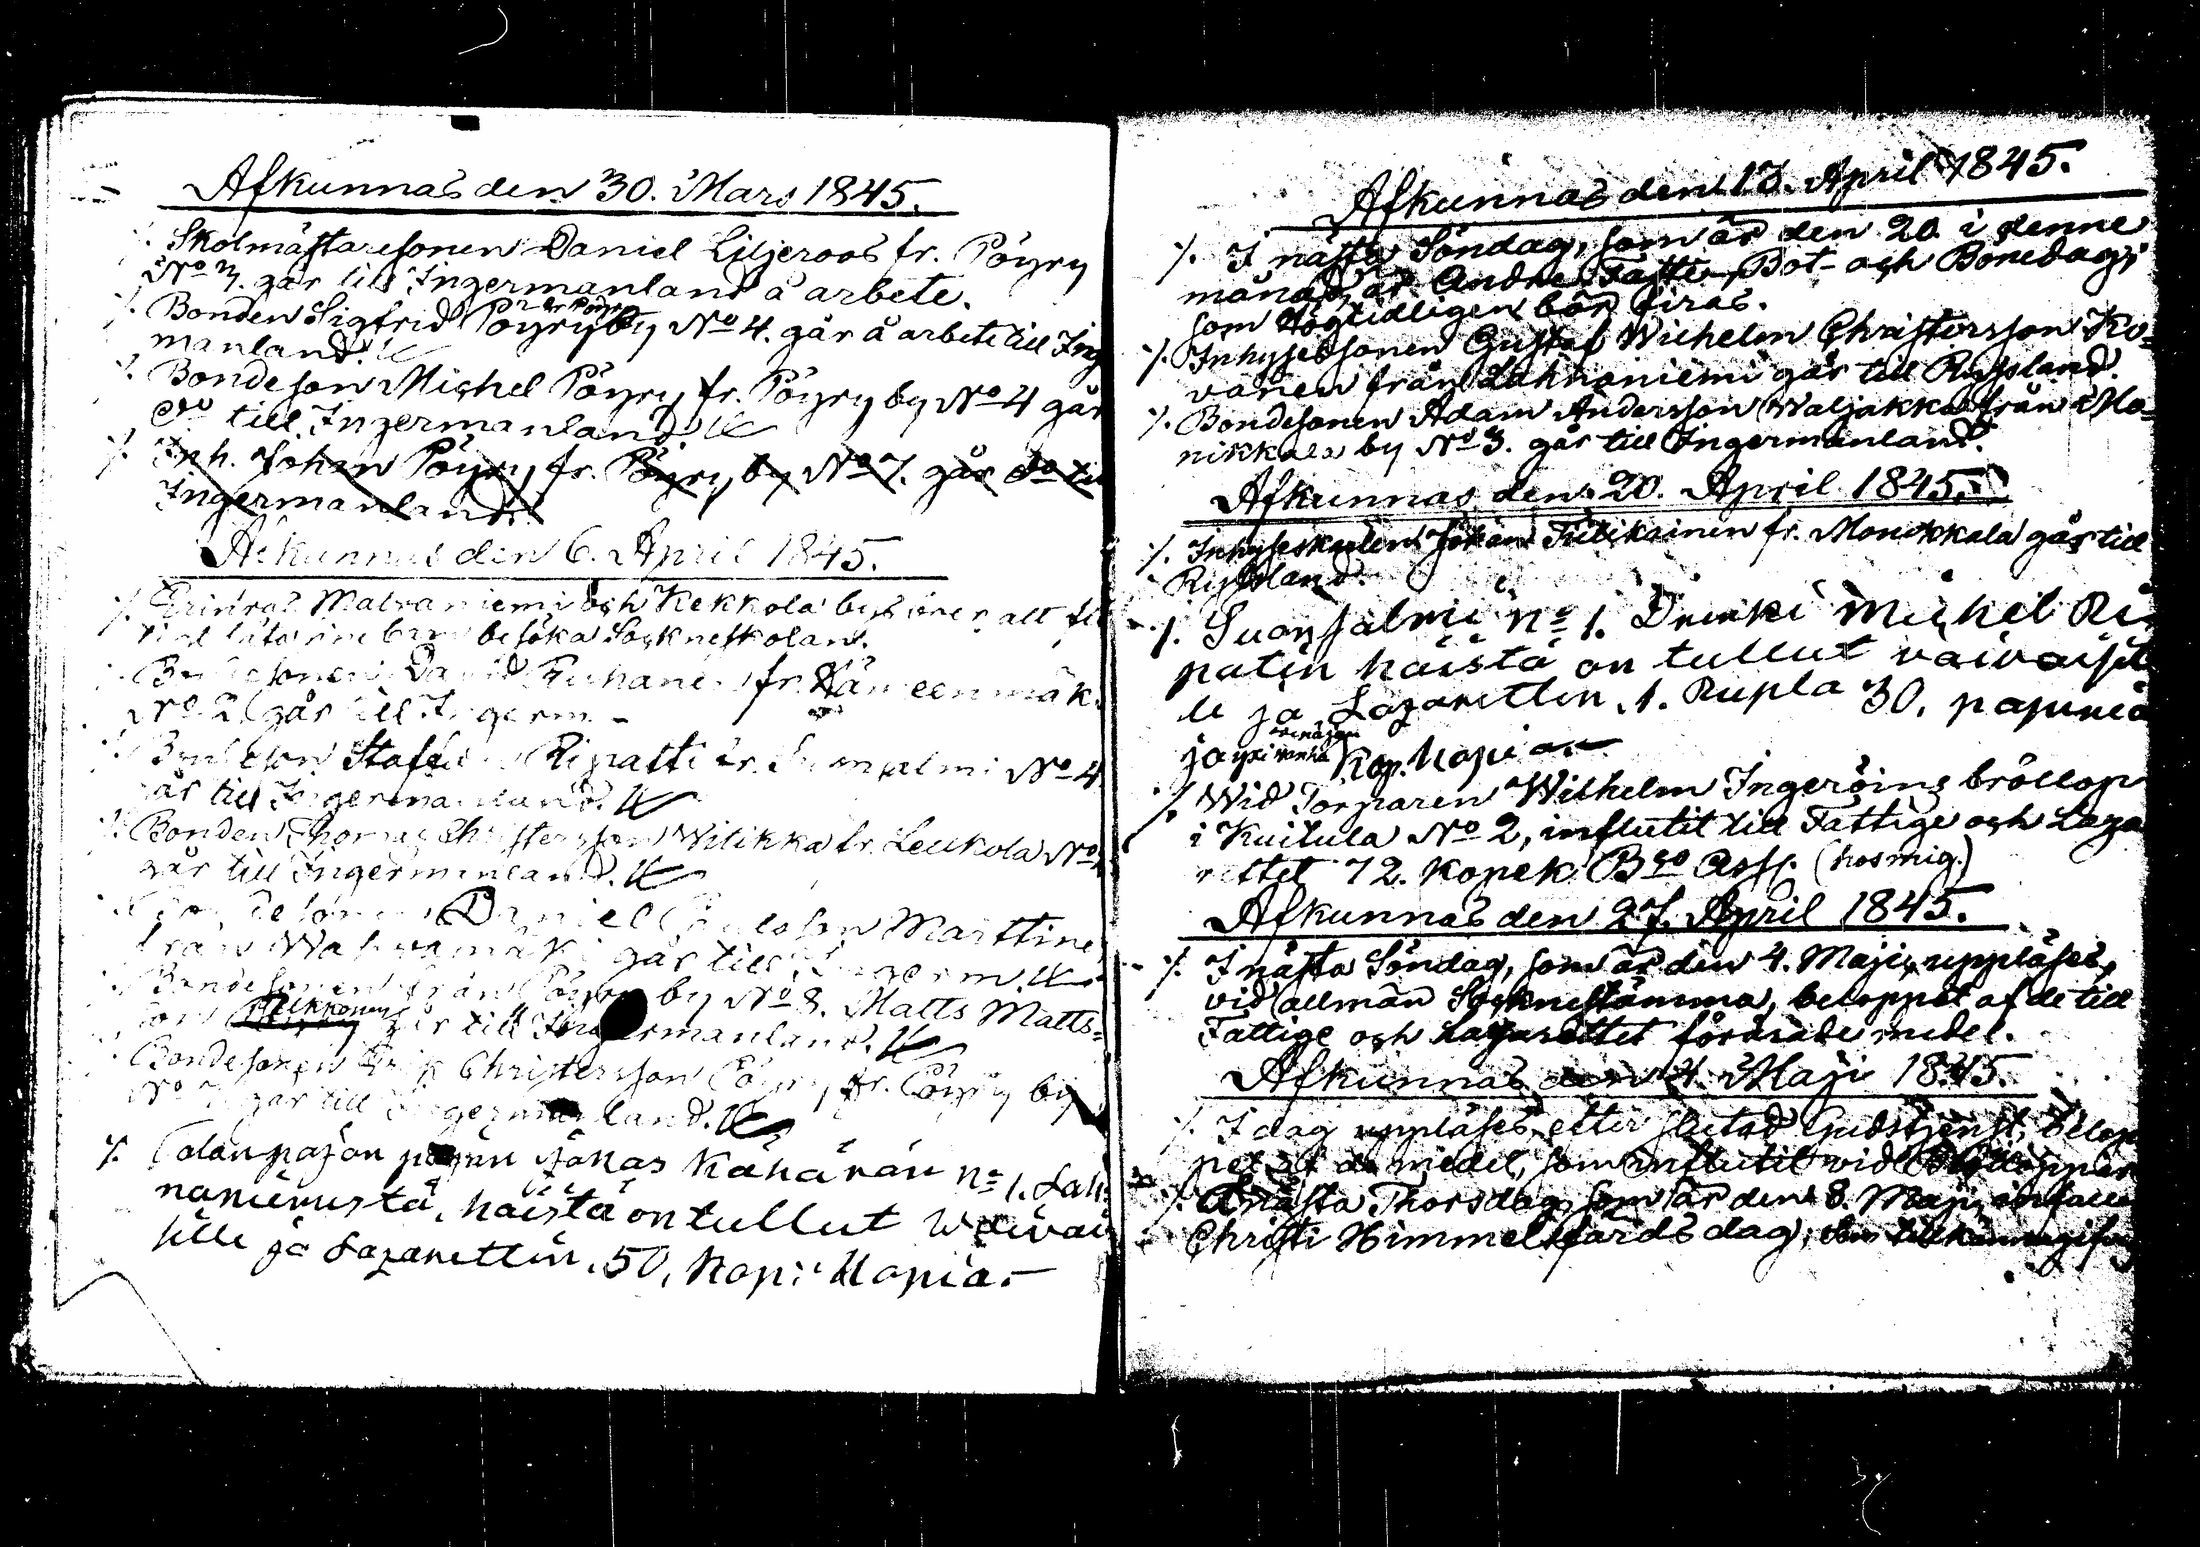 Afkunnas den 30. Mars 1845.
·/. Skolmästaresonen Daniel Liljeroos fr. Pöyry
No 7. går till Ingermanland å arbete.
·/. Bonden Sigfrid Pöyry by No 4. går å arbete till Inger
manland.
·/. Bondeson Michel Pöyry fr. Pöyry by No 4 går
do till Ingermanland.
·/. Inh. Johan Pöyry fr. Pöyry by No 7. går do till
Ingermanland.
Afkunnas den 6. April 1845.
·/. Malvaniemi och Kekkola
låta sine barn besöka Sockneskolan.
David fr. Hämeenmäki
No 2. går till Ingerm.
·/. Bondeson Staffan Ripatti fr. Suonsalmi No 4
går till Ingermanland.
·/. Bonden Thomas Christersson Wilikka fr. Leukola No
går till Ingermanland.
Bondesonen Daniel Paulsson Marttinen
från går till Ingerm.
Bondesonen från Pöyry by No 8. Matts Matts-
son Pekkonen går till Ingermanland.
Bondesonen Erik Christersson Pöyry fr. Pöyry by
No 7. går till Ingermanland.
·/. Talonpojan pojan Kähärän No 1. Lah-
naniemistä, häistä on tullut Waivai
sille ja Lazarettiin. 50, Kop: Kopia.
Afkunnas den 13. April 1845.
·/. I nästa Söndag, som är den 20. i denne
månad, är Andre Faste-, Bot- och Bönedag,
som högtidligen bör firas.
·/. Inhysesonen Gustaf Wilhelm Christersson Ko-
vanen från Lahnaniemi går till Ryssland.
·/. Bondesonen Adam Andersson Waljakka från Mo-
nikkala by No 3. går till Ingermanland.
Afkunnas den 20. April 1845.
·/. Inhyseskarlen Johan Tiilikainen fr. Monikkala går till
Ryssland.
·/. Suonsalmi No 1. Drenki Michel Ri
patin häistä on tullut vaivaisil
le ja Lazarettin. 1. Rupla 30,
ja Kop. Kopia.
·/. Wid Torparen Wilhelm Ingeröins bröllop
i Kuitula No 2, influtit till Fattige och Laza
rettet 72. kopek Bco Ass. (hos mig.)
Afkunnas den 27. April 1845.
·/. I nästa Söndag, som är den 4. Maji, uppläses,
vid allmän Socknestämma, beloppet af de till
Fattige och Lazarettet förärade medel.
Afkunnas den 4. Maji 1845.
·/. I dag uppläses, efter slutad Gudstjenst, belop
pet af de medel, som influtit vid
·/. Å nästa Thorsdag, som är den 8. Maji, infaller
Christi Himmelsfärds dag,